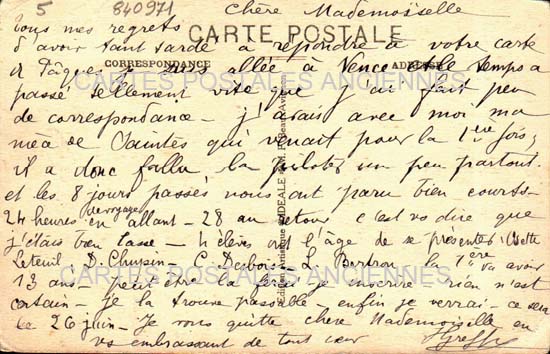 5 840971 Chère Mademoiselle
Tous mes regrets
CARTE POSTALE
d'avoir tant tardé à répondre à votre carte
CORRESPONDANCE ADRESSE
de Pâques je suis allée à Vence le temps a
passé tellement vite que j'ai fait peu
de correspondance - j'avais avec moi ma
de Saintes qui venait pour la 1ère fois,
il a donc fallu la piloter un peu partout
et les 8 jours passés nous ont paru bien courts -
24 heures de voyage en allant - 28 au retour c'est vs dire que
j'étais bien lasse - 4 élèves ont l'âge de se présenter :
D. C. L. la 1ère va avoir
13 ans peut être la ferai je inscrire rien n'est
certain - je la trouve passable - enfin je verrai - ce sera
le 26 juin - Je vous quitte chère Mademoiselle en
vs embrassant de tout cœur
CARTES POSTALES ANCIENNES
CARTES POSTALES ANCIENNES